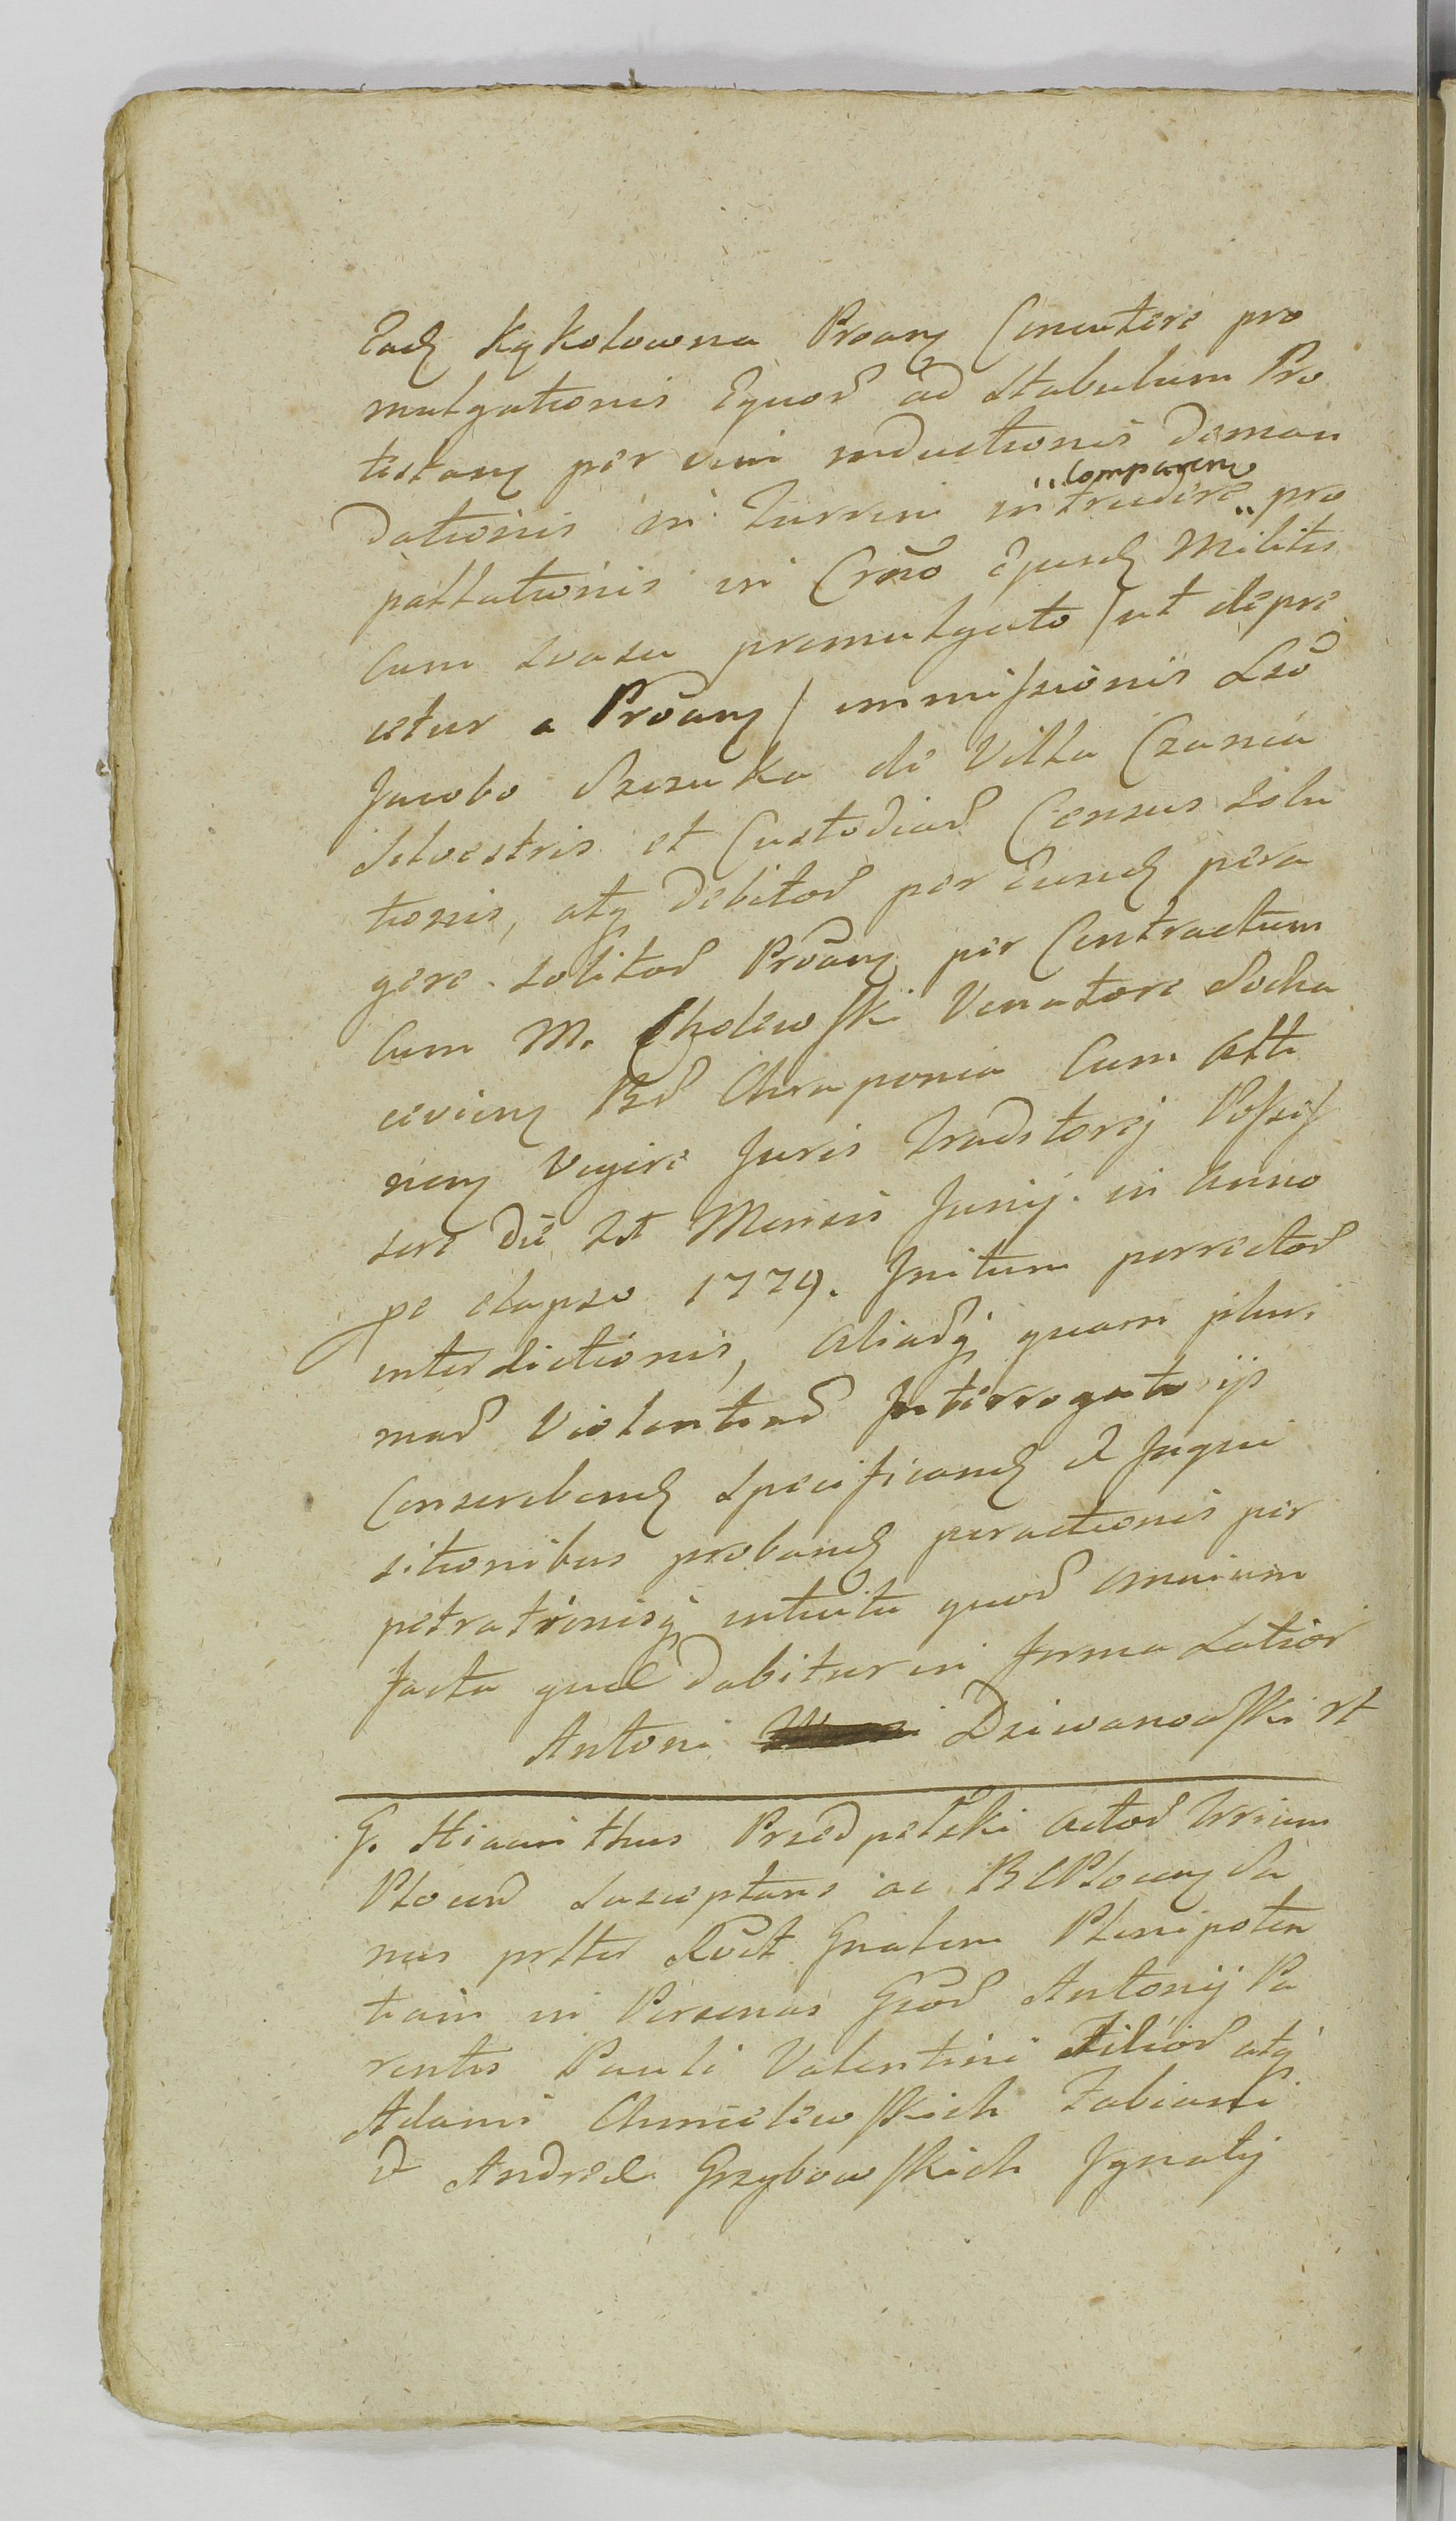 Ead Kąkolowna Proany Concutere pro
mulgationis Equoꝝ ad Stabulum Pro
testany per vim inductionis deman
dationis in Turrim intrudere comparen pro
pallationis in Crio Ejusd Militis
Cum suasu promulgato / ut depre
cetur a Proany / immissionis Lao
Jacobo de Villa Czamia
Silvestris et Custodiaꝝ Census solu
tionis, atq debitoꝝ per Eund pera
gere solitoꝝ Proany per Contractum
Cum M. Cholewski Venatore Socha
ceviens Chraponia Cum Atti
neny vigore Juris Possess
sere die 21 Mensis Junij in Anno
pe elapso 1779. Initum porrectoꝝ
interdictionis, Aliaꝝq quam pluri
maꝝ Violentiaꝝ Interrogatorijs
Conscribend Specificand et Inqui
sitionibus proband peractionis per
petrationisq intuitu quoꝝ omnium
facta quae dabitur in forma Latior
Antoni Dziwanowski
G. Hiacinthus Przedpelski Actoꝝ
Plocens Susceptans ac Plocens
nus prttus Generalem Plenipoten
tiam in Personas Gsoꝝ Antonij Pa
rentis Pauli Valentini Filioꝝ atq
Adami Chmielewskich Fabiani
et Andreae Grzybowskich Ignatij